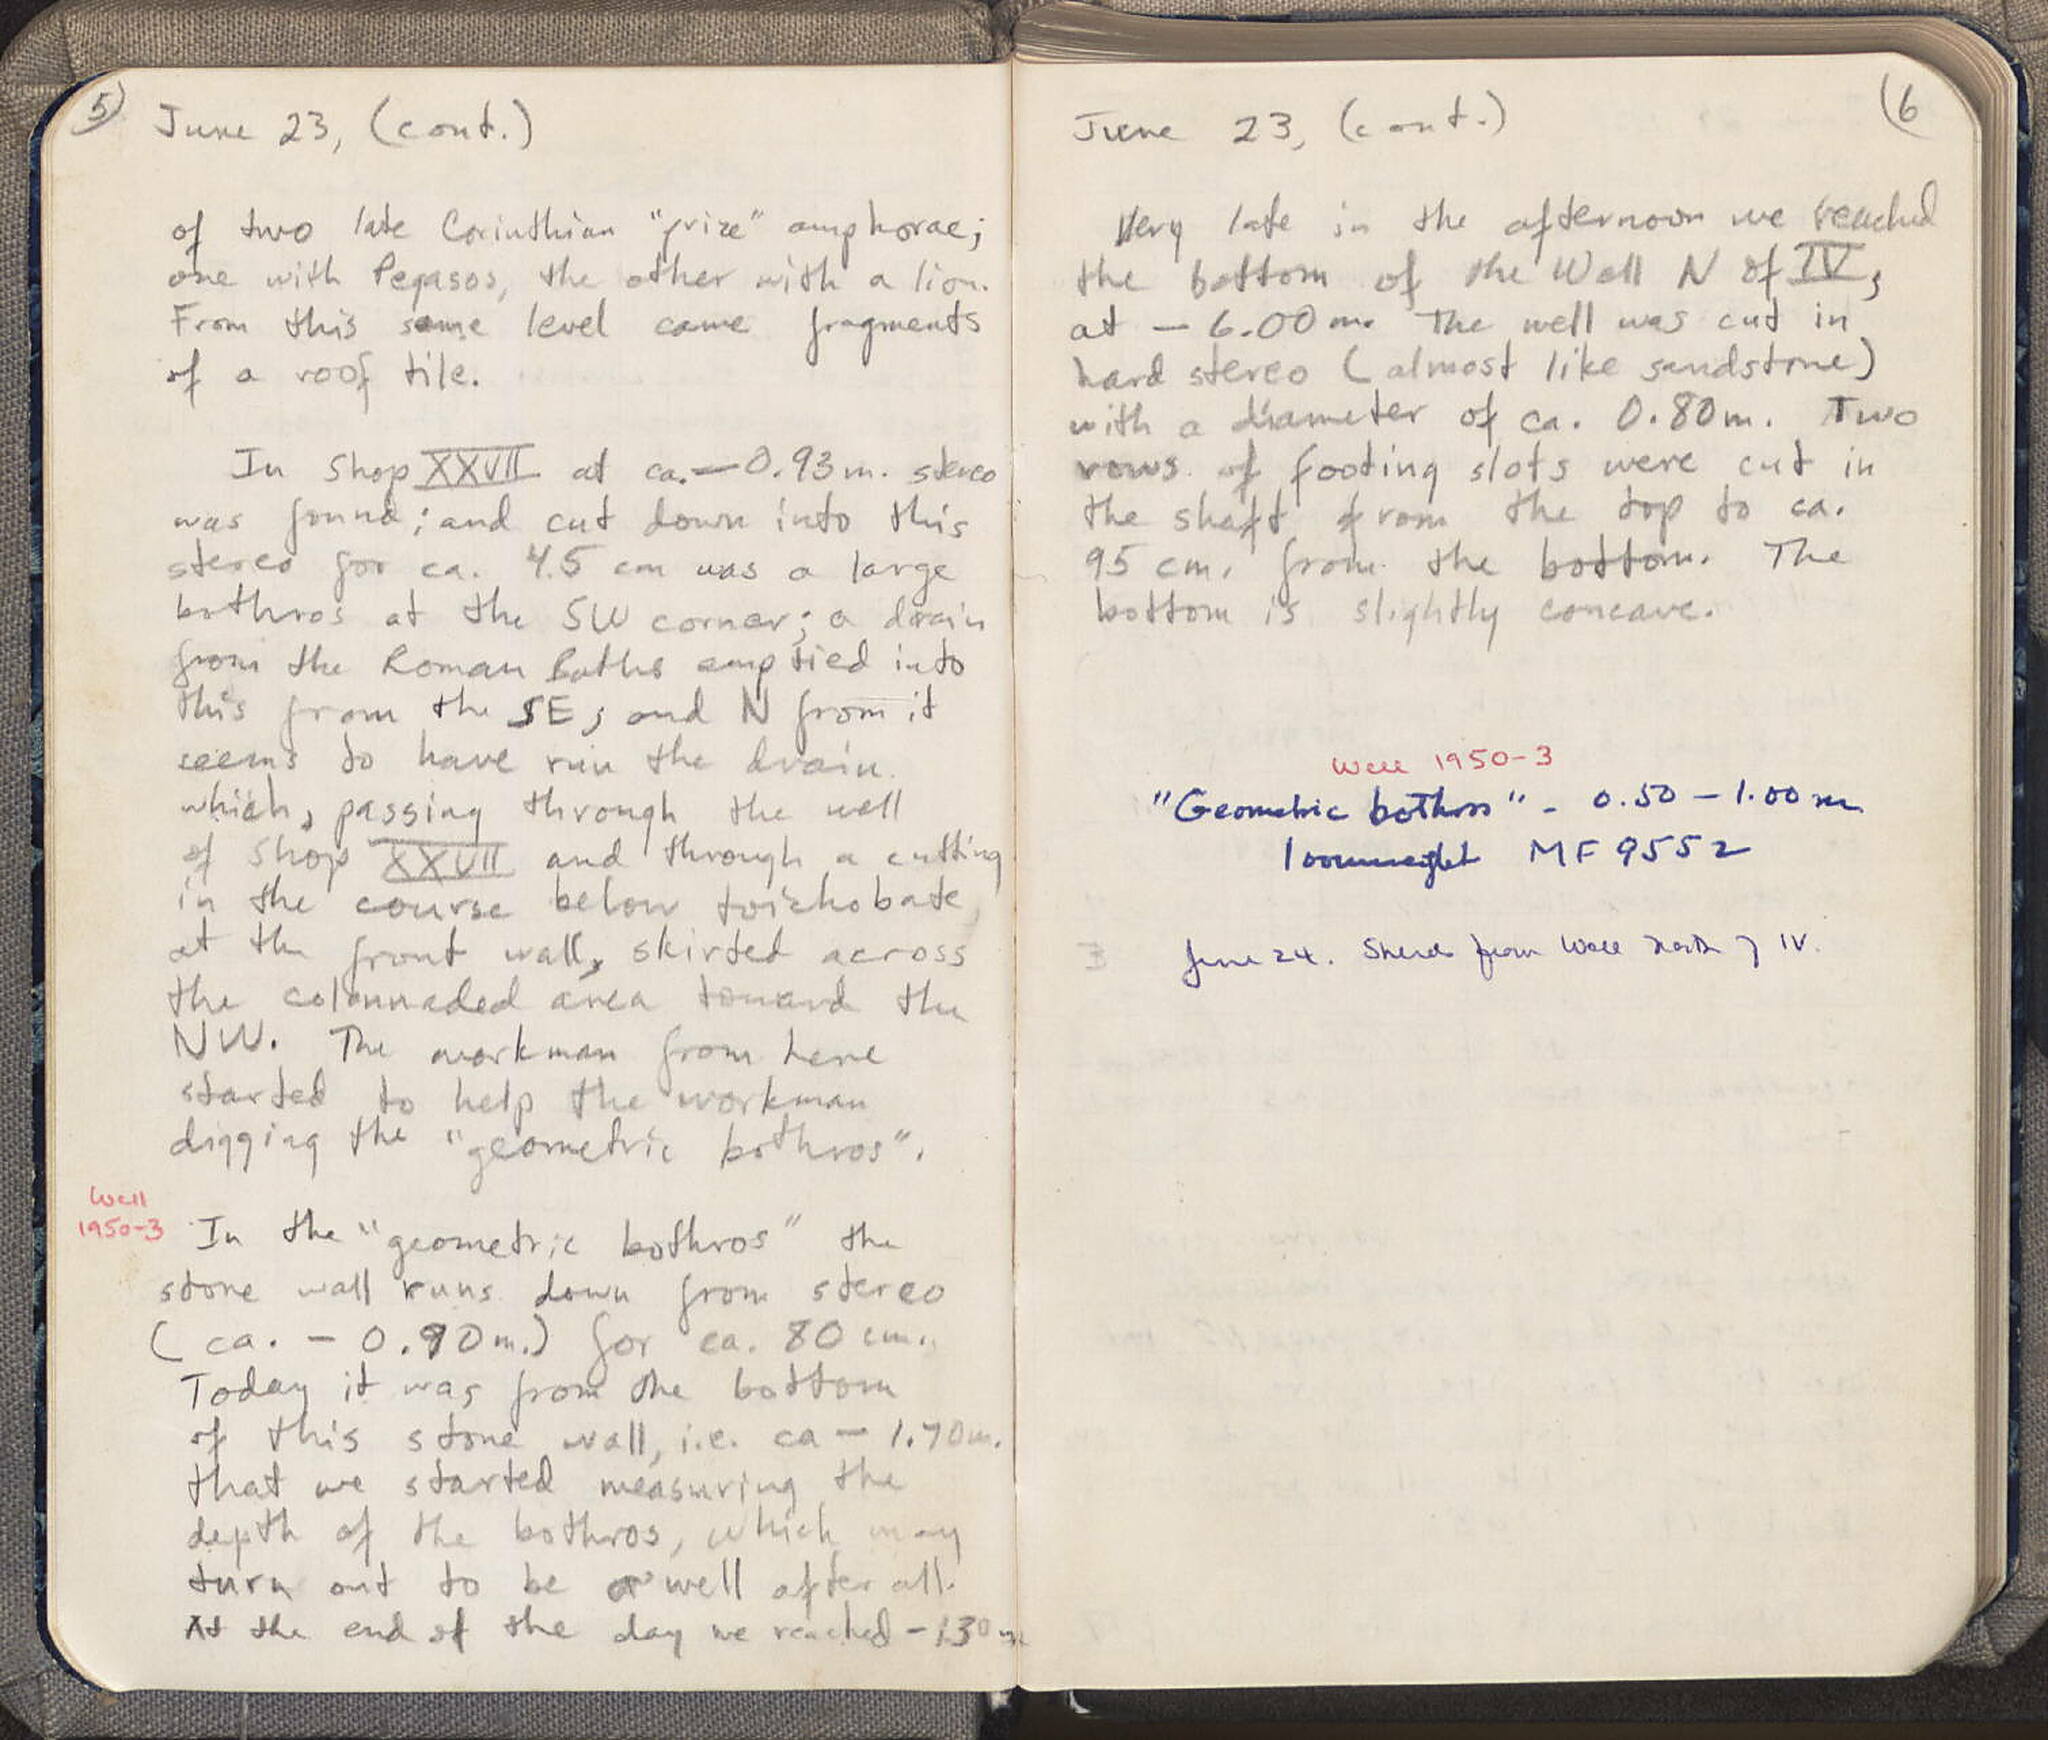 5) June 23, (cont.)
of two late Corinthian "prize" amphorae;
one with Pegasos, the other with a lion.
From this same level came fragments
of a roof tile.
In Shop XXVII at ca. - 0.93 m. stereo
was found; and cut down into this
stereo for ca. 4.5 cm was a large
bothros at the SW corner; a drain
from the Roman Baths emptied into
this from the SE; and N from it
seems to have run the drain
which, passing through the wall
of Shop XXVII and through a cutting
in the course below toichobate
at the front wall, skirted across
the colonnaded area toward the
NW. The workman from here
started to help the workman
digging the "geometric bothros".
Well
1950-3
In the "geometric bothros" the
stone wall runs down from stereo
(ca. - 0.90 m.) for ca. 80 cm.
Today it was from the bottom
of this stone wall, i.e. ca - 1.70 m.
that we started measuring the
depth of the bothros, which may
turn out to be a well after all.
At the end of the day we reached - 1.30 m
(6
June 23, (cont.)
Very late in the afternoon we reached
the bottom of the Well N of IV,
at - 6.00 m. The well was cut in
hard stereo (almost like sandstone)
with a diameter of ca. 0.80 m. Two
rows of footing slots were cut in
the shaft from the top to ca.
95 cm. from the bottom. The
bottom is slightly concave.
Well 1950-3
"Geometric bothros" - 0.50 - 1.00 m
loomweight MF 9552
June 24. Sherds from Well North of IV.